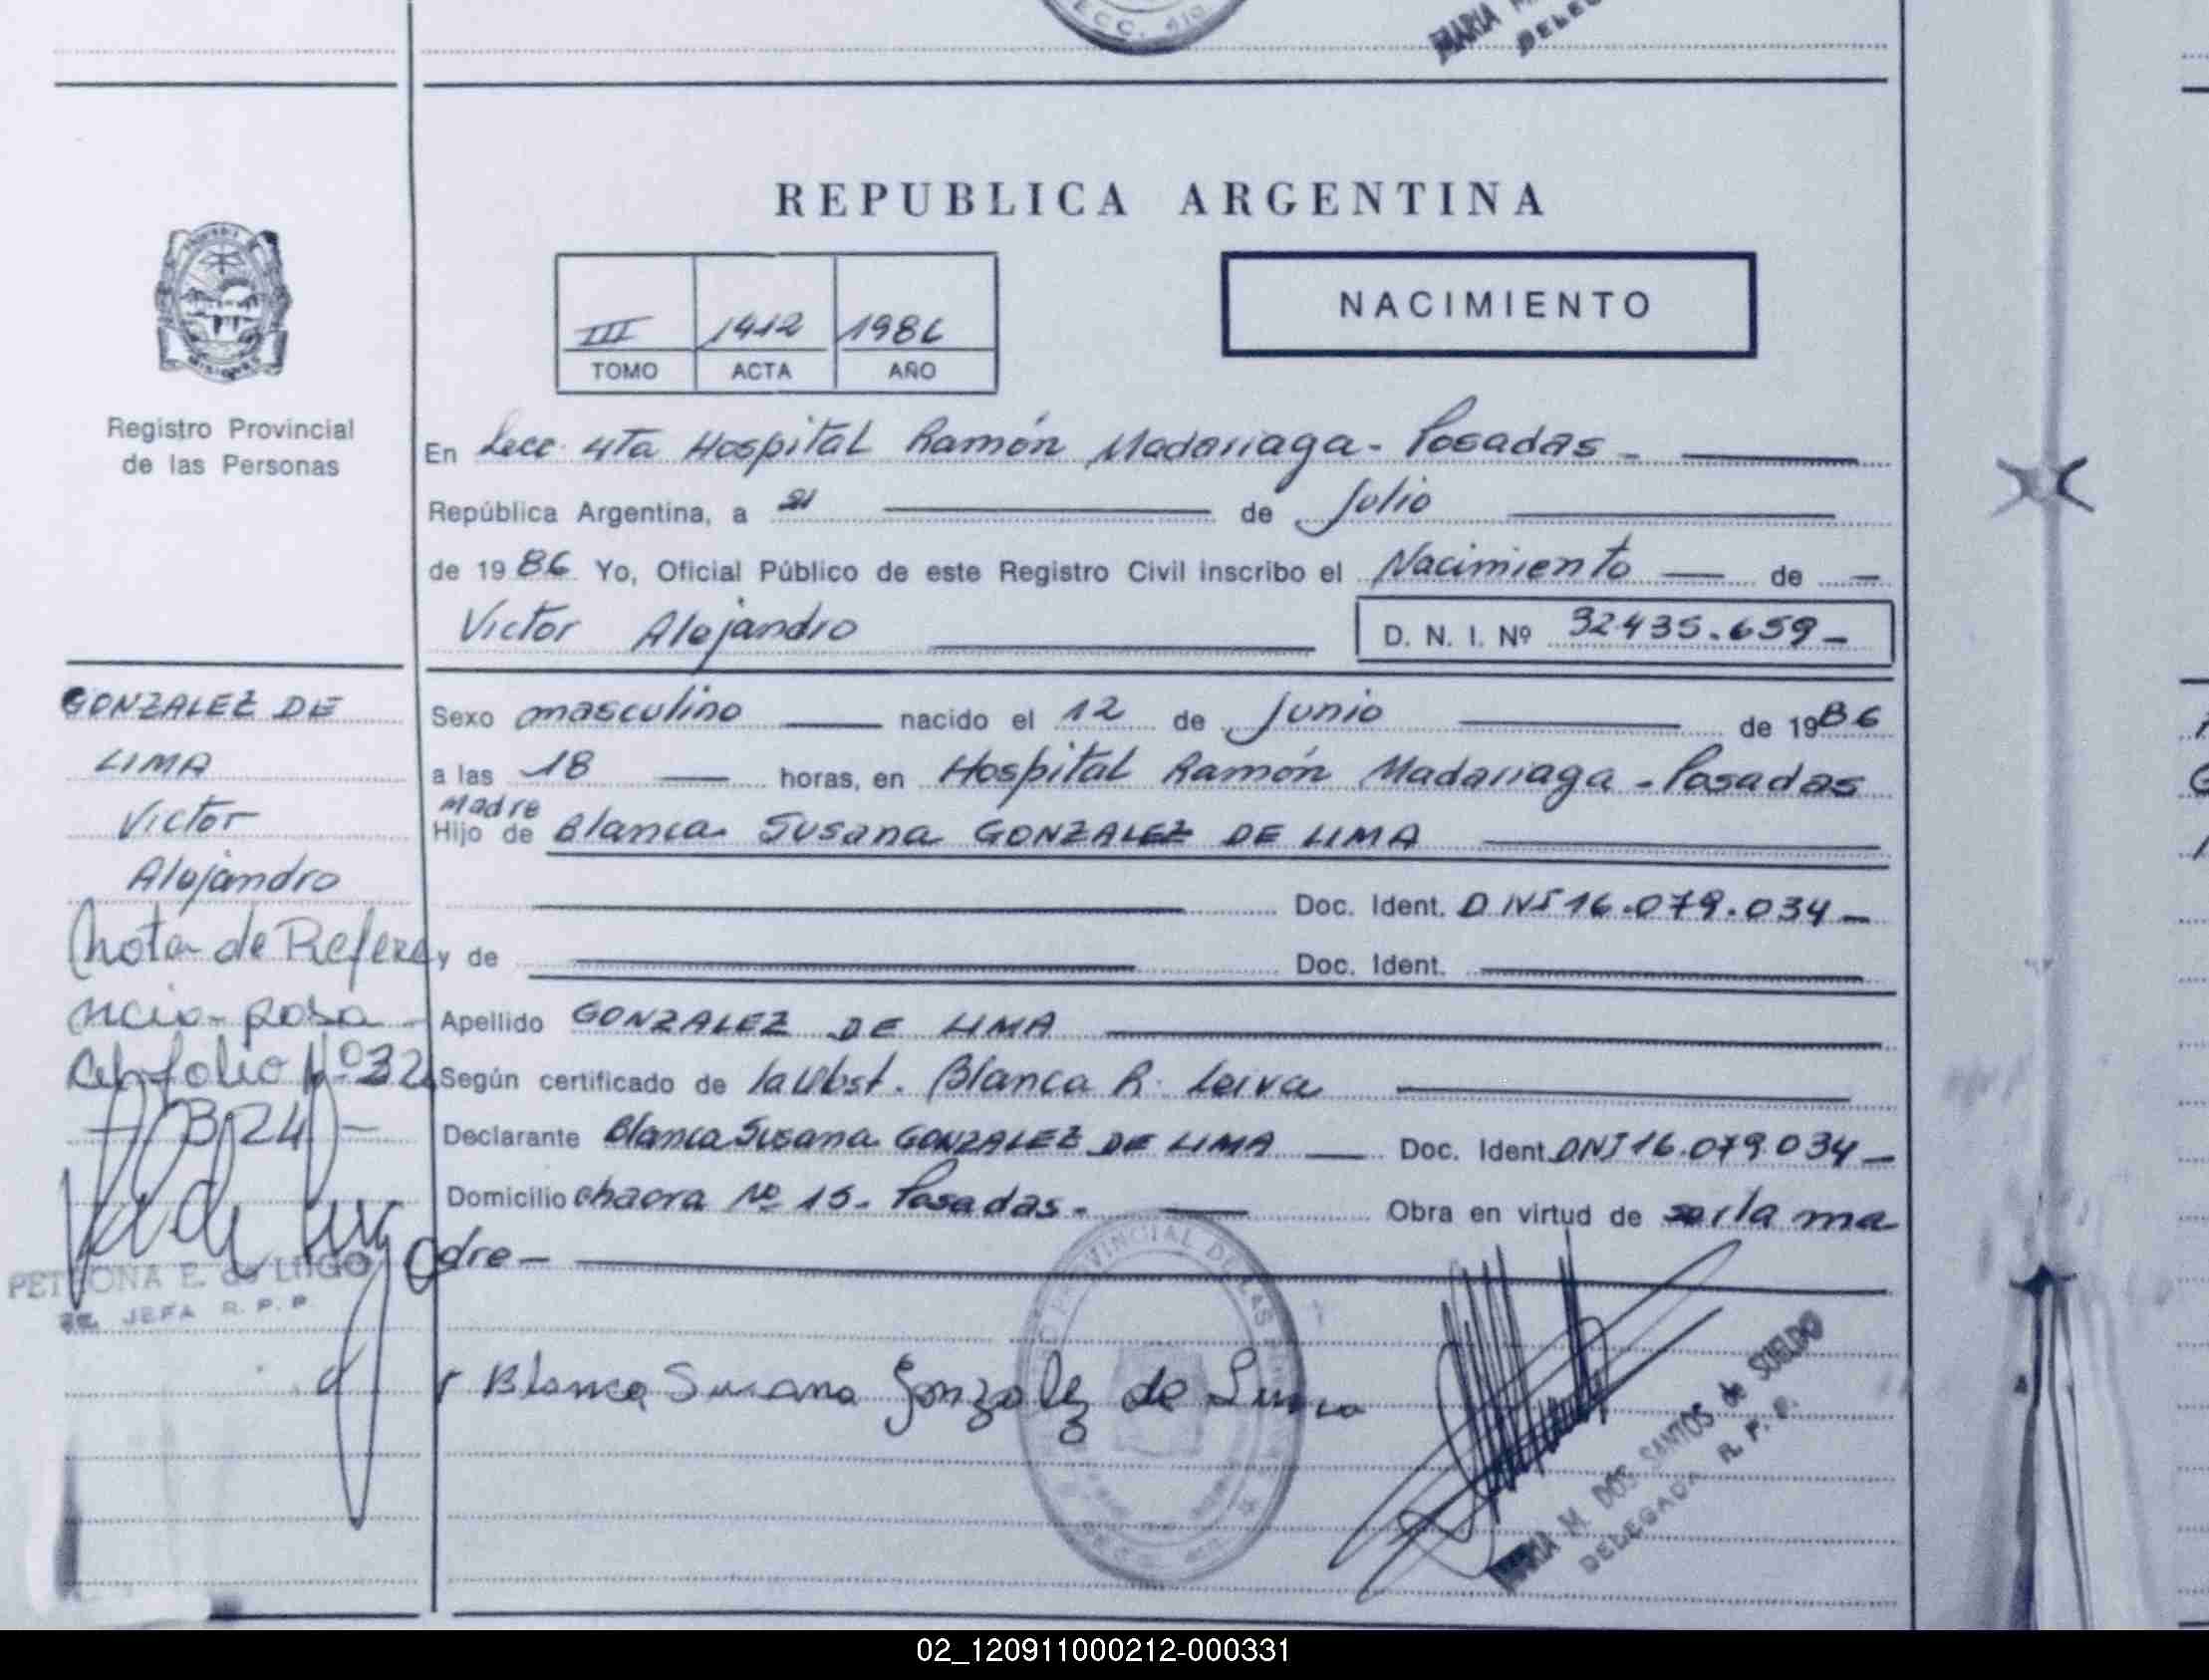 SECC. 4ta.
MARIA
DELEG
REPUBLICA ARGENTINA
III 1412 1986
TOMO ACTA AÑO
NACIMIENTO
MISIONES
Registro Provincial
de las Personas
En Secc. 4Ta Hospital Ramón Madariaga - Posadas -
República Argentina, a 21 de Julio
de 1986 Yo, Oficial Público de este Registro Civil inscribo el Nacimiento de
Victor Alejandro D. N. I. Nº 32435.659-
GONZALEZ DE
LIMA
Victor
Alejandro
Nota de Refere
ncia
folio Nº 32
Sexo masculino nacido el 12 de Junio de 1986
a las 18 horas, en Hospital Ramón Madariaga - Posadas
Madre
Hijo de Blanca Susana GONZALEZ DE LIMA
Doc. Ident. DNI 16.079.034-
y de Doc. Ident.
Apellido GONZALEZ DE LIMA
Según certificado de la Obst. Blanca R. Leiva
Declarante Blanca Susana GONZALEZ DE LIMA Doc. Ident. DNI 16.079.034-
Domicilio Chacra Nº 15- Posadas- Obra en virtud de ser la ma
dre-
PETRONA E. de LUGO
JEFA R. P. P.
PROVINCIAL DE LAS
Blanca Susana Gonzalez de Lima
MARIA M. DOS SANTOS de SUELDO
DELEGADA R. P. P.
02_120911000212-000331